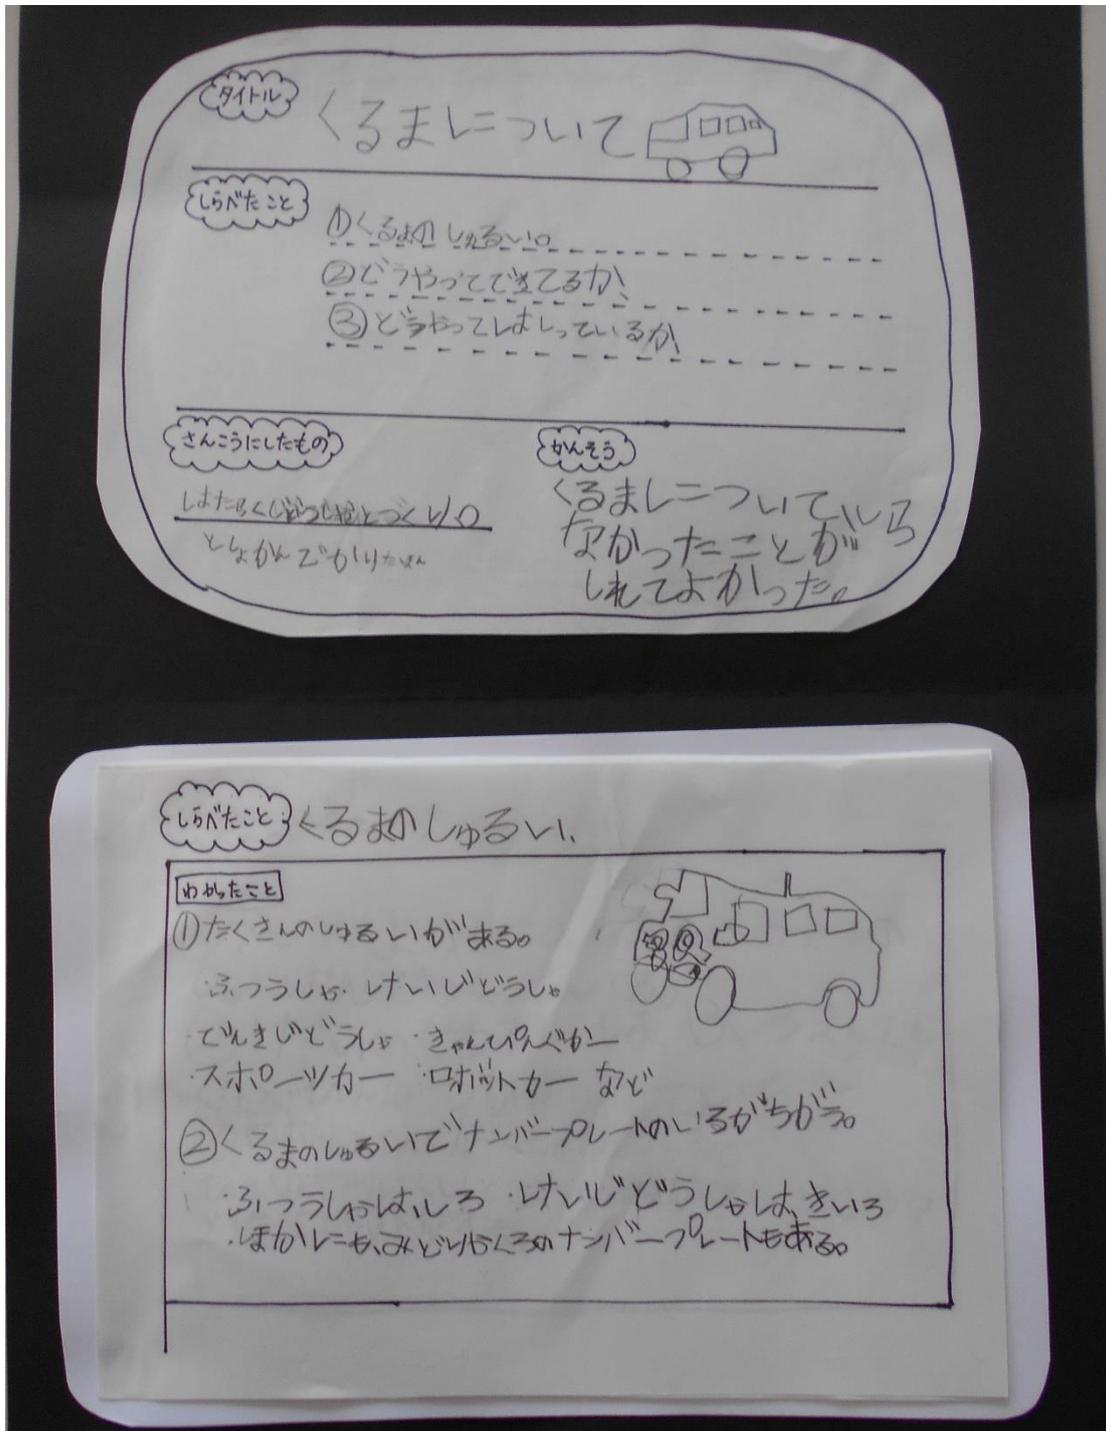 タイトル くるまについて
しらべたこと
①くるまのしゅるい。
②どうやってできてるか、
③どうやってはしっているか、
さんこうにしたもの
はたらくじどうしゃ
としょかんでかりた
かんそう
くるまについて、しら
なかったことが
しれてよかった。
しらべたこと くるまのしゅるい、
わかったこと
①たくさんのしゅるいがある。
・ふつうしゃ・けいじどうしゃ
・でんきじどうしゃ ・きゃんぴんぐかー
・スポーツカー ・ロボットカー など
②くるまのしゅるいでナンバープレートのいろがちがう。
・ふつうしゃは、しろ ・けいじどうしゃは、きいろ
・ほかにも、みどりやくろのナンバープレートもある。